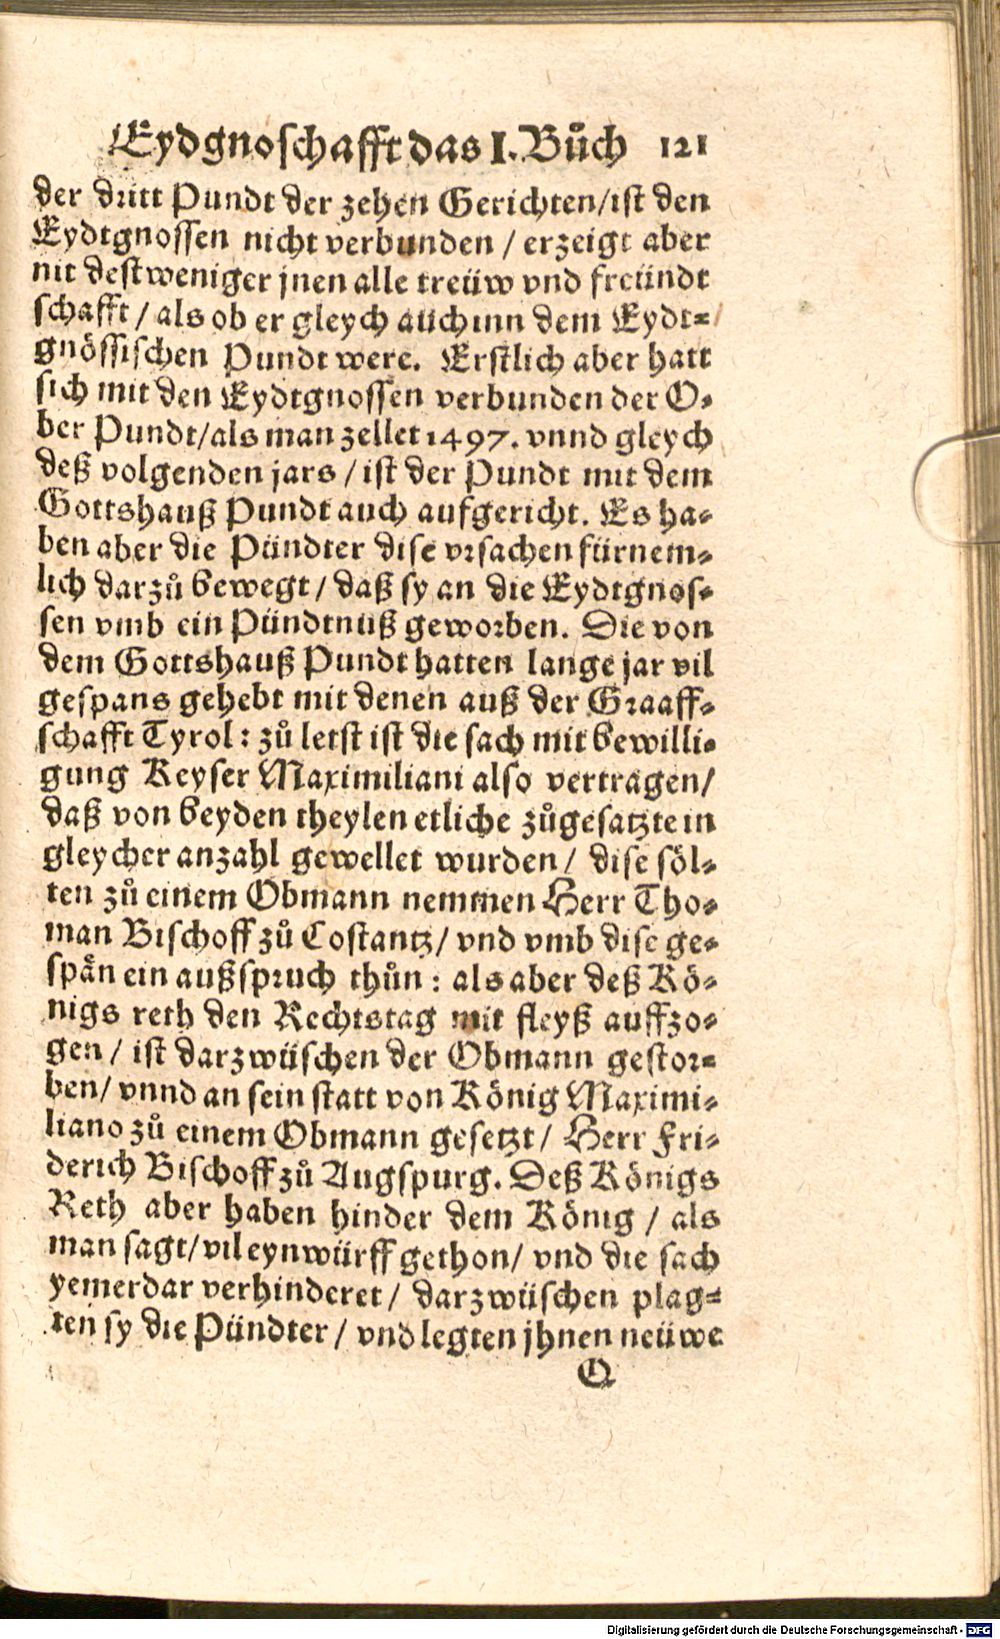 Eydgnoschafft das I. Bůch 121
der dritt Pundt der zehen Gerichten/ist den
Eydtgnossen nicht verbunden / erzeigt aber
nit destweniger jnen alle treüw vnd freündt
schafft / als ob er gleych auch inn dem Eydt-
gnössischen Pundt were. Erstlich aber hatt
sich mit den Eydtgnossen verbunden der O-
ber Pundt/als man zellet 1497. vnnd gleych
deß volgenden jars / ist der Pundt mit dem
Gottshauß Pundt auch aufgericht. Es ha-
ben aber die Pündter dise vrsachen fürnem-
lich darzů bewegt / daß sy an die Eydtgnos-
sen vmb ein Pündtnuß geworben. Die von
dem Gottshauß Pundt hatten lange jar vil
gespans gehebt mit denen auß der Graaff-
schafft Tyrol: zů letst ist die sach mit bewilli-
gung Keyser Maximiliani also vertragen/
daß von beyden theylen etliche zůgesatzte in
gleycher anzahl gewellet wurden / dise söl-
ten zů einem Obmann nemmen Herr Tho-
man Bischoff zů Costantz/ vnd vmb dise ge-
spän ein außspruch thůn : als aber deß Kö-
nigs reth den Rechtstag mit fleyß auffzo-
gen / ist darzwüschen der Obmann gestor-
ben/ vnnd an sein statt von König Maximi-
liano zů einem Obmann gesetzt / Herr Fri-
derich Bischoff zů Augspurg. Deß Königs
Reth aber haben hinder dem König / als
man sagt/ vil eynwürff gethon/ vnd die sach
yemerdar verhinderet / darzwüschen plag-
ten sy die Pündter / vnd legten jhnen neüwe
Q
Digitalisierung gefördert durch die Deutsche Forschungsgemeinschaft - DFG